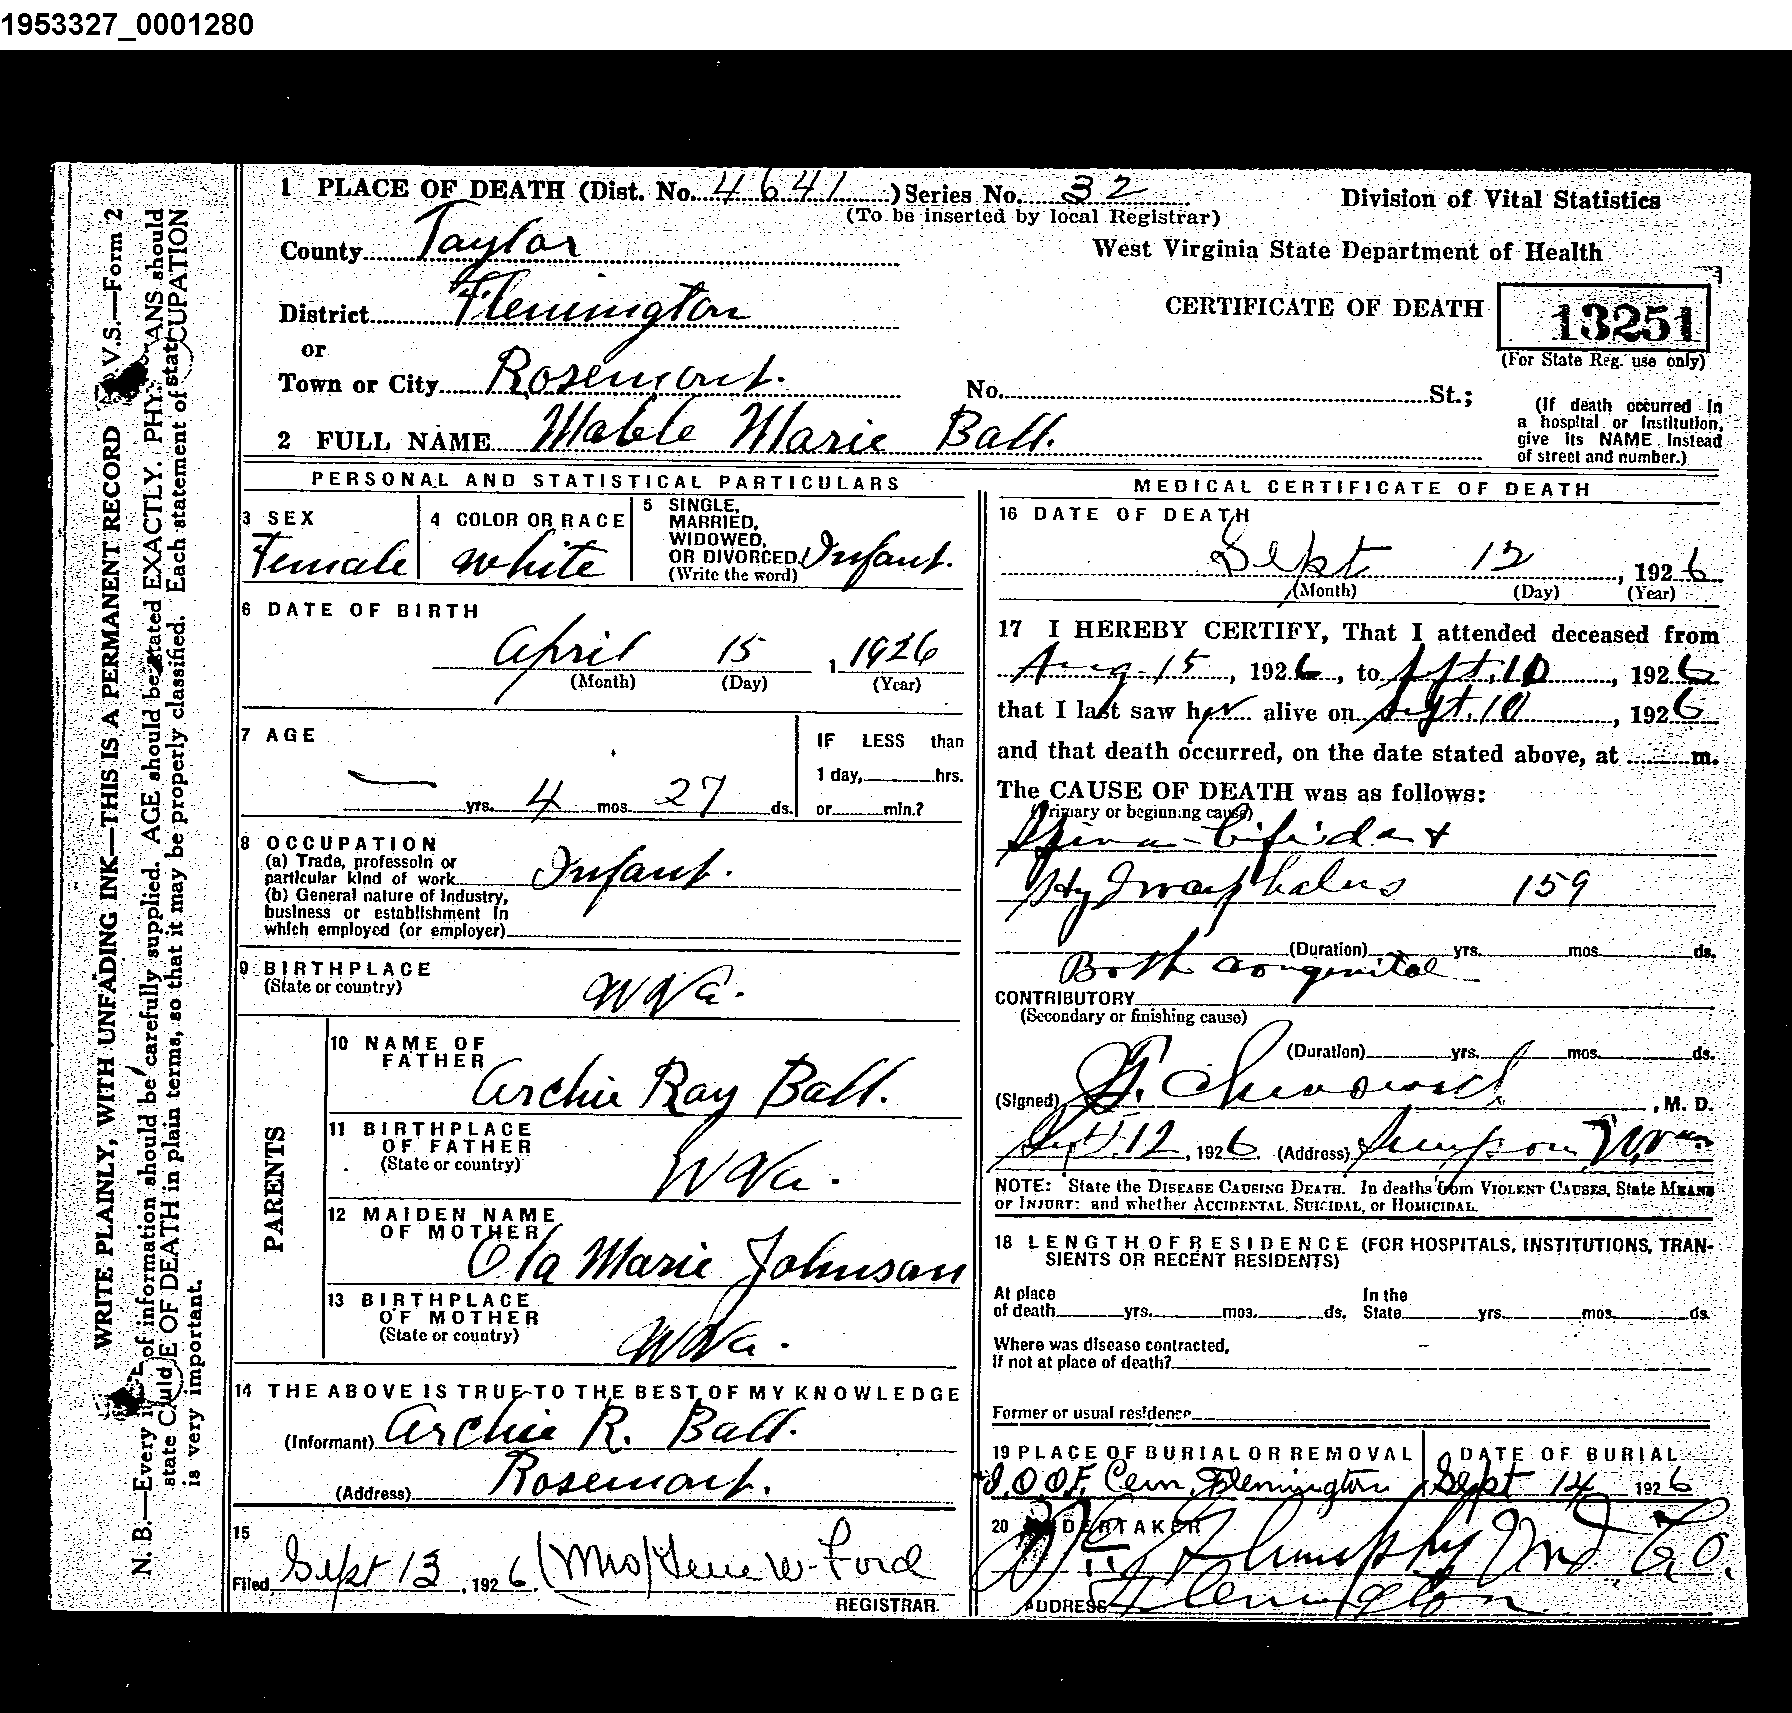 1953327_0001280
1 PLACE OF DEATH (Dist. No. 4641 ) Series No. 32
(To be inserted by local Registrar)
Division of Vital Statistics
County Taylor
West Virginia State Department of Health
District Flemington
CERTIFICATE OF DEATH
13251
(For State Reg. use only)
or
Town or City Rosemont.
No. St.;
(If death occurred in
a hospital or institution,
give its NAME instead
of street and number.)
2 FULL NAME Mable Marie Ball.
PERSONAL AND STATISTICAL PARTICULARS
3 SEX
Female
4 COLOR OR RACE
White
5 SINGLE,
MARRIED,
WIDOWED,
OR DIVORCED Infant.
(Write the word)
6 DATE OF BIRTH
April 15, 1926
(Month) (Day) (Year)
7 AGE
— yrs. 4 mos. 27 ds.
IF LESS than
1 day, hrs.
or min.?
8 OCCUPATION
(a) Trade, professoin or
particular kind of work Infant.
(b) General nature of Industry,
business or establishment in
which employed (or employer)
9 BIRTHPLACE
(State or country) W Va.
PARENTS
10 NAME OF
FATHER
Archie Ray Ball.
11 BIRTHPLACE
OF FATHER
(State or country) W Va.
12 MAIDEN NAME
OF MOTHER
Ola Marie Johnson
13 BIRTHPLACE
OF MOTHER
(State or country) W Va.
14 THE ABOVE IS TRUE TO THE BEST OF MY KNOWLEDGE
(Informant) Archie R. Ball.
(Address) Rosemont.
15
Filed Sept 13, 1926 (Mrs) W. Ford
REGISTRAR
MEDICAL CERTIFICATE OF DEATH
16 DATE OF DEATH
Sept 12, 1926
(Month) (Day) (Year)
17 I HEREBY CERTIFY, That I attended deceased from
Aug 15, 1926, to Sept. 10, 1926
that I last saw her alive on Sept. 10, 1926
and that death occurred, on the date stated above, at m.
The CAUSE OF DEATH was as follows:
(Primary or beginning cause)
Spina-bifida +
Hydrocephalus 159
(Duration) yrs. mos. ds.
Both congenital
CONTRIBUTORY
(Secondary or finishing cause)
(Duration) yrs. mos. ds.
(Signed) , M. D.
Sept 12, 1926 (Address) Simpson W.Va
NOTE: State the DISEASE CAUSING DEATH. In deaths from VIOLENT CAUSES, State MEANS
OF INJURY: and whether ACCIDENTAL, SUICIDAL, or HOMICIDAL.
18 LENGTH OF RESIDENCE (FOR HOSPITALS, INSTITUTIONS, TRAN-
SIENTS OR RECENT RESIDENTS)
At place
of death yrs. mos. ds.
In the
State yrs. mos. ds.
Where was disease contracted,
If not at place of death?
Former or usual residence
19 PLACE OF BURIAL OR REMOVAL
I.O.O.F. Cem, Flemington
DATE OF BURIAL
Sept 14 1926
20 UNDERTAKER
Und. Co.
ADDRESS Flemington
V.S.—Form 2
WRITE PLAINLY, WITH UNFADING INK—THIS IS A PERMANENT RECORD
N. B.—Every of information should be carefully supplied. AGE should be stated EXACTLY. PHY ANS should
state OF DEATH in plain terms, so that it may be properly classified. Each statement of CUPATION
is very important.